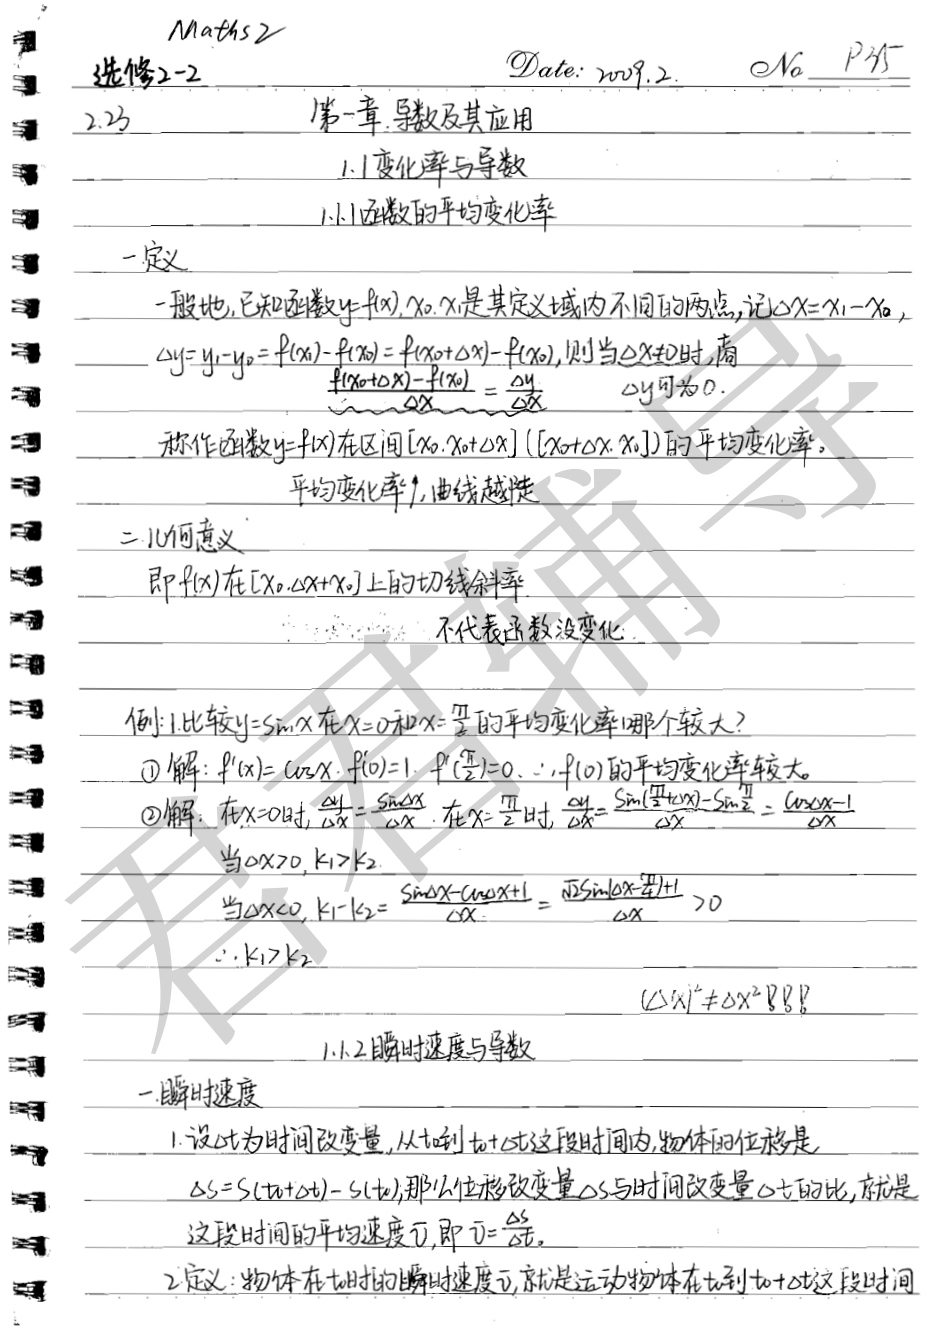 Maths2
选修2-2 Date: 2009.2. No P35
2.23 第一章.导数及其应用
1.1变化率与导数
1.1.1函数的平均变化率
一.定义
一般地,已知函数y=f(x),x₀.x₁是其定义域内不同的两点,记Δx=x₁-x₀,
Δy=y₁-y₀=f(x₁)-f(x₀)=f(x₀+Δx)-f(x₀),则当Δx≠0时,商
(f(x₀+Δx)-f(x₀))/Δx = Δy/Δx Δy可为0.
称作函数y=f(x)在区间[x₀.x₀+Δx]([x₀+Δx.x₀])的平均变化率。
平均变化率↑,曲线越陡
二.几何意义
即f(x)在[x₀.Δx+x₀]上的切线斜率.
不代表函数没变化.
例:1.比较y=sinx在x=0和x=π/2的平均变化率哪个较大?
①解:f'(x)=cosx.f'(0)=1.f'(π/2)=0.∴f(0)的平均变化率较大。
②解:在x=0时,Δy/Δx=sinΔx/Δx.在x=π/2时,Δy/Δx=(sin(π/2+Δx)-sinπ/2)/Δx=(cosΔx-1)/Δx
当Δx>0,k₁>k₂.
当Δx<0,k₁-k₂=(sinΔx-cosΔx+1)/Δx=(√2sin(Δx-π/4)+1)/Δx>0
∴k₁>k₂
(Δx)²≠Δx²!!!
1.1.2瞬时速度与导数
一.瞬时速度
1.设Δt为时间改变量,从t₀到t₀+Δt这段时间内,物体的位移是
ΔS=S(t₀+Δt)-S(t₀),那么位移改变量ΔS与时间改变量Δt的比,就是
这段时间的平均速度v̄,即v̄=ΔS/Δt。
2.定义:物体在t₀时的瞬时速度v,就是运动物体在t₀到t₀+Δt这段时间
君君辅导